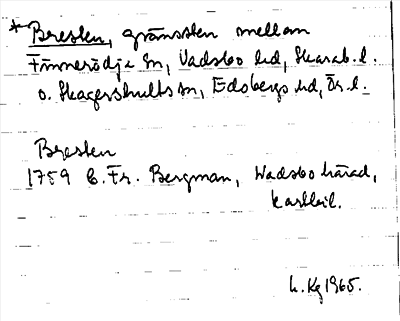 *Bresten, gränssten mellan
Finnerödja sn, Vadsbo hd, Skarab. l.
o. Skagershults sn, Edsbergs hd, Ör. l.
Bresten
1759 C. Fr. Bergman, Wadsbo härad,
kartbil.
L. Kg 1965.